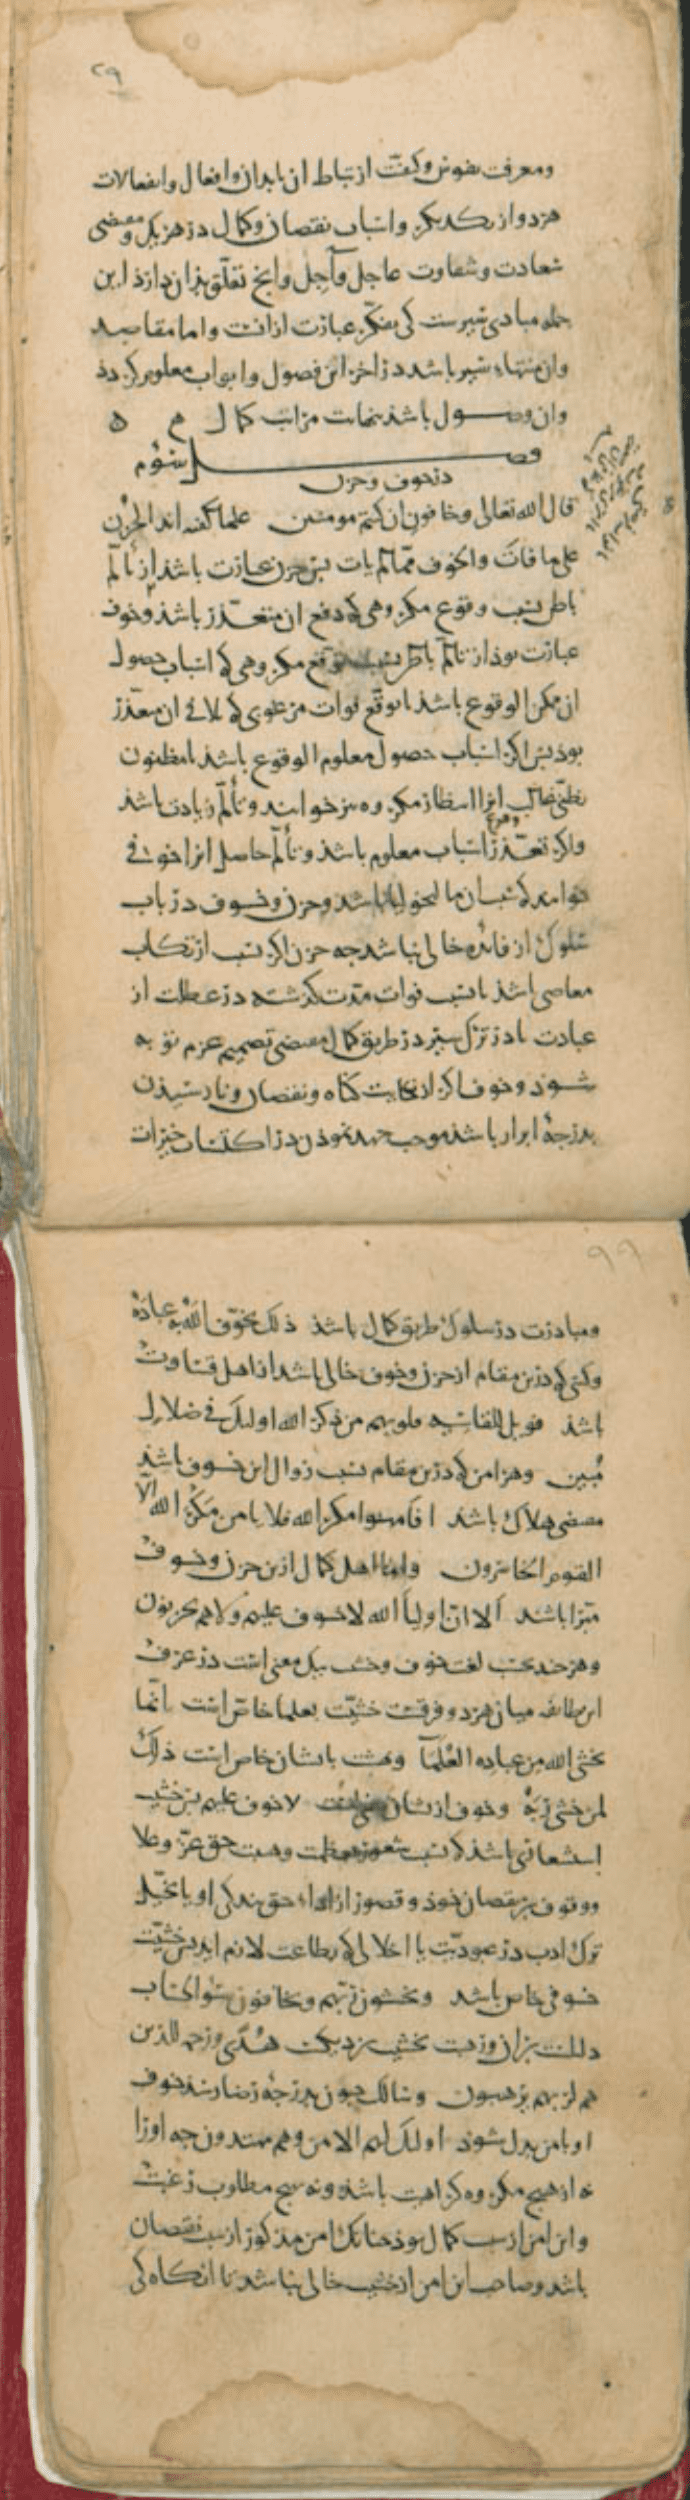 ۲۹
ومعرفت نفوس وکیفیت ارتباط ان بابدان وافعال وانفعالات
هردو از یکدیگر واسباب نقصان وکمال در هر یکی ومقتضی
سعادت وشقاوت عاجل وآجل وانچ تعلق بدان دارد این
جمله مبادی سیرست کی تفکر عبارت ازانست واما مقاصد
وان منتهاء سیر باشد در اخر این فصول وابواب معلوم گردد
وان وصول باشد بنهایت مراتب کمال م ه
فصل سوم
در خوف وحزن
قال الله تعالی وخافون ان کنتم مومنین علما گفته اند الحزن
علی ما فات والخوف مما لم یات پس حزن عبارت باشد از تألم
باطن بسبب وقوع مکروهی که دفع ان متعذر باشد وخوف
عبارت بود از تألم باطن بسبب توقع مکروهی که اسباب حصول
ان ممکن الوقوع باشد یا توقع فوات مرغوبی که تلافی ان متعذر
بود پس اگر اسباب حصول معلوم الوقوع باشد یا مظنون
بظنی غالب انرا انتظار مکروه نیز خوانند وتألم زیادت باشد
واگر تعذر وقوع اسباب معلوم باشد وتألم حاصل انرا خوفی
خوانند که سبب ان مالیخولیا باشد وحزن وخوف در باب
سلوک از فائده خالی نباشد چه حزن اگر بسبب ارتکاب
معاصی باشد یا بسبب فوات مدت گذشته در عطلت از
عبادت یا در ترک سیر در طریق کمال مقتضی تصمیم عزم توبه
شود وخوف اگر از ارتکاب گناه ونقصان ونارسیدن
بدرجهٔ ابرار باشد موجب جهد نمودن در اکتساب خیرات
۹۹
ومبادرت در سلوک طریق کمال باشد ذلک یخوف الله به عباده
وکسی که درین مقام از حزن وخوف خالی باشد از اهل قساوت
باشد فویل للقاسیه قلوبهم من ذکر الله اولئک فی ضلال
مبین وهر امن که درین مقام بسبب زوال این خوف باشد
مقتضی هلاک باشد افامنوا مکر الله فلا یامن مکر الله الا
القوم الخاسرون واما اهل کمال ازین حزن وخوف
مبرا باشند الا ان اولیاء الله لا خوف علیهم ولا هم یحزنون
وهرچند بحسب لغت خوف وخشیت بیک معنی است در عرف
این طایفه میان هردو فرقست خشیت بعلما خاص است انما
یخشی الله من عباده العلماء وبهشت بایشان خاص است ذلک
لمن خشی ربه وخوف ازیشان منفی است لا خوف علیهم پس خشیت
استشعاری باشد که بسبب شعور بعظمت وهیبت حق عز وعلا
ووقوف بر نقصان خود وقصور از اداء حق بندگی او یا تخیل
ترک ادب در عبودیت یا اخلالی که بطاعت لازم اید پس خشیت
خوفی خاص باشد ویخشون ربهم ویخافون سوء الحساب
دالست بران ورهبت بخشیت نزدیکست هدی ورحمة للذین
هم لربهم یرهبون وسالک چون بدرجهٔ رضا رسد خوف
او بامن بدل شود اولئک لهم الامن وهم مهتدون چه اورا
نه از هیچ مکروه کراهت باشد ونه بهیچ مطلوب رغبت
واین امن از سبب کمال بود چنانک امن مذکور از سبب نقصان
باشد وصاحب این امن از خشیت خالی نباشد تا انگاه کی